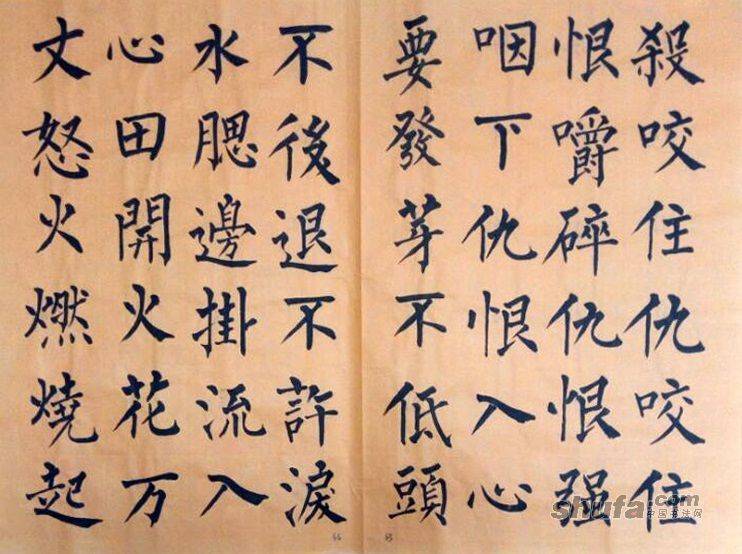 殺咬住仇咬住
恨嚼碎仇恨强
咽下仇恨入心
要發芽不低頭
不後退不許淚
水腮邊掛流入
心田開火花万
丈怒火燃燒起
shufa.com
中国书法网